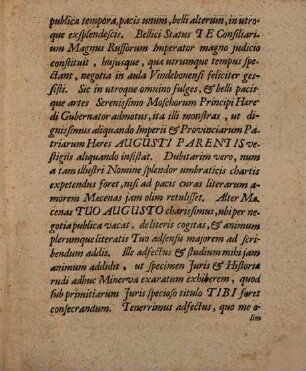 publica tempora, pacis unum, belli alterum, in utro-
que exsplendescis. Bellici Status TE Consiliari-
um Magnus Russorum Imperator magno judicio
constituit, hujusque, quæ utrumque tempus spe-
ctant, negotia in aula Vindebonensi feliciter ges-
sisti. Sic in utroque omnino fulges, & belli pacis-
que artes Serenissimo Moschorum Principi Here-
di Gubernator admotus, ita illi monstras, ut di-
gnissimus aliquando Imperii & Provinciarum Pa-
triarum Heres AUGUSTI PARENTIS ve-
stigiis aliquando insistat. Dubitarim vero, num
a tam illustri Nomine splendor umbraticis chartis
expetendus foret, nisi ad pacis curas literarum a-
morem Mecenas jam olim retulisset. Alter Mæ-
cenas TUO AUGUSTO charissimus, ubi per ne-
gotia publica vacat, de literis cogitas, & animum
plerumque literatis Tuo adsensu majorem ad scri-
bendum addis. Ille adfectus & studium mihi jam
animum addidit, ut specimen Juris & Historiæ
rudi adhuc Minerva exaratum exhiberem, quod
sub primitiarum Juris specioso titulo TIBI foret
consecrandum. Tenerrimus adfectus, quo me o-
lim